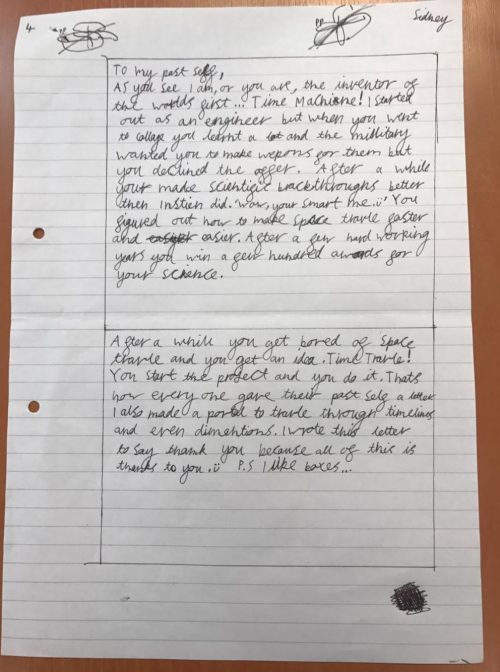 4
PP.
PP.
Sidney
To my past self,
As you see I am, or you are, the inventor of
the worlds first... Time Machiene! I started
out as an engineer but when you went
to collage you learnt a lot and the millitary
wanted you to make wepons for them but
you declined the offer. After a while
your made scientific brackthroughs better
then Instien did. Wow, your smart me. ü You
figured out how to make space travle faster
and easier. After a few hard working
years you win a few hundred awards for
your science.
After a while you get bored of space
travle and you get an idea. Time Travle!
You start the project and you do it. Thats
how every one gave their past self a letter.
I also made a portel to travle through timelines
and even dimentions. I wrote this letter
to say thank you because all of this is
thanks to you. ü P.S I like boxes...